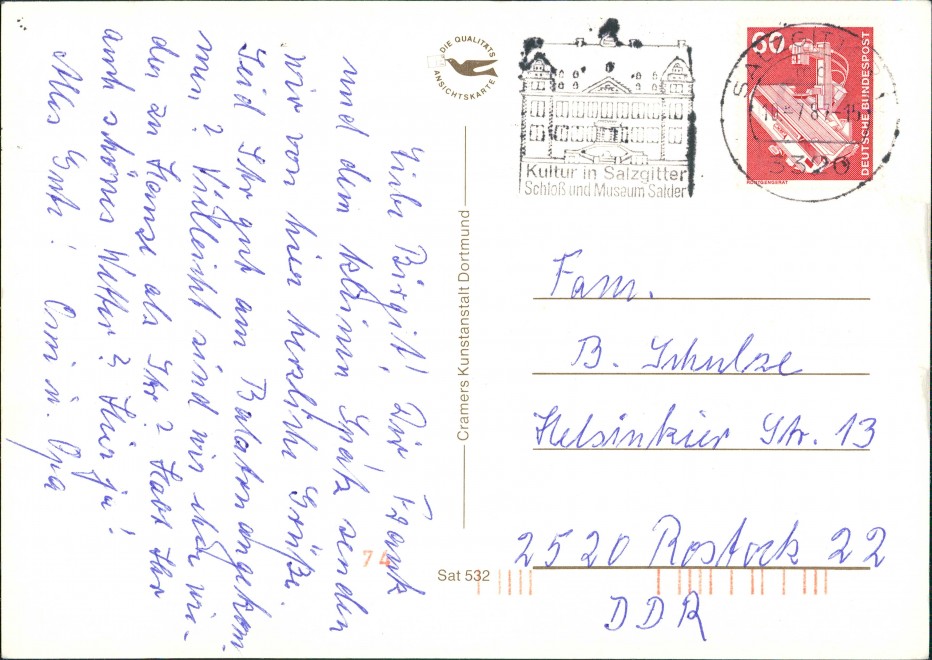 Liebe Birgit! Dir Frank
und dem kleinen Spatz senden
wir von hier herzliche Grüße.
Seid Ihr gut am Balaton angekom-
men? Vielleicht sind wir eher wie-
der zu Hause als Ihr? Habt Ihr
auch schönes Wetter? Hier ja!
Alles Gute! Omi u. Opa
DIE QUALITÄTS
ANSICHTSKARTE
Cramers Kunstanstalt Dortmund
Sat 532
74
Kultur in Salzgitter
Schloß und Museum Salder
SALZGITTER
-7.87-
3320
60
DEUTSCHE BUNDESPOST
RÖNTGENGERÄT
Fam.
B. Schulze
Helsinkier Str. 13
2520 Rostock 22
DDR